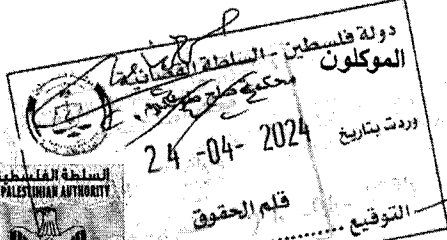 دولة فلسطين - السلطة القضائية
الموكلون
محكمة صلح
وردت بتاريخ
24 -04- 2024
قلم الحقوق
التوقيع ................
السلطة الفلسطين
PALESTINIAN AUTHORITY